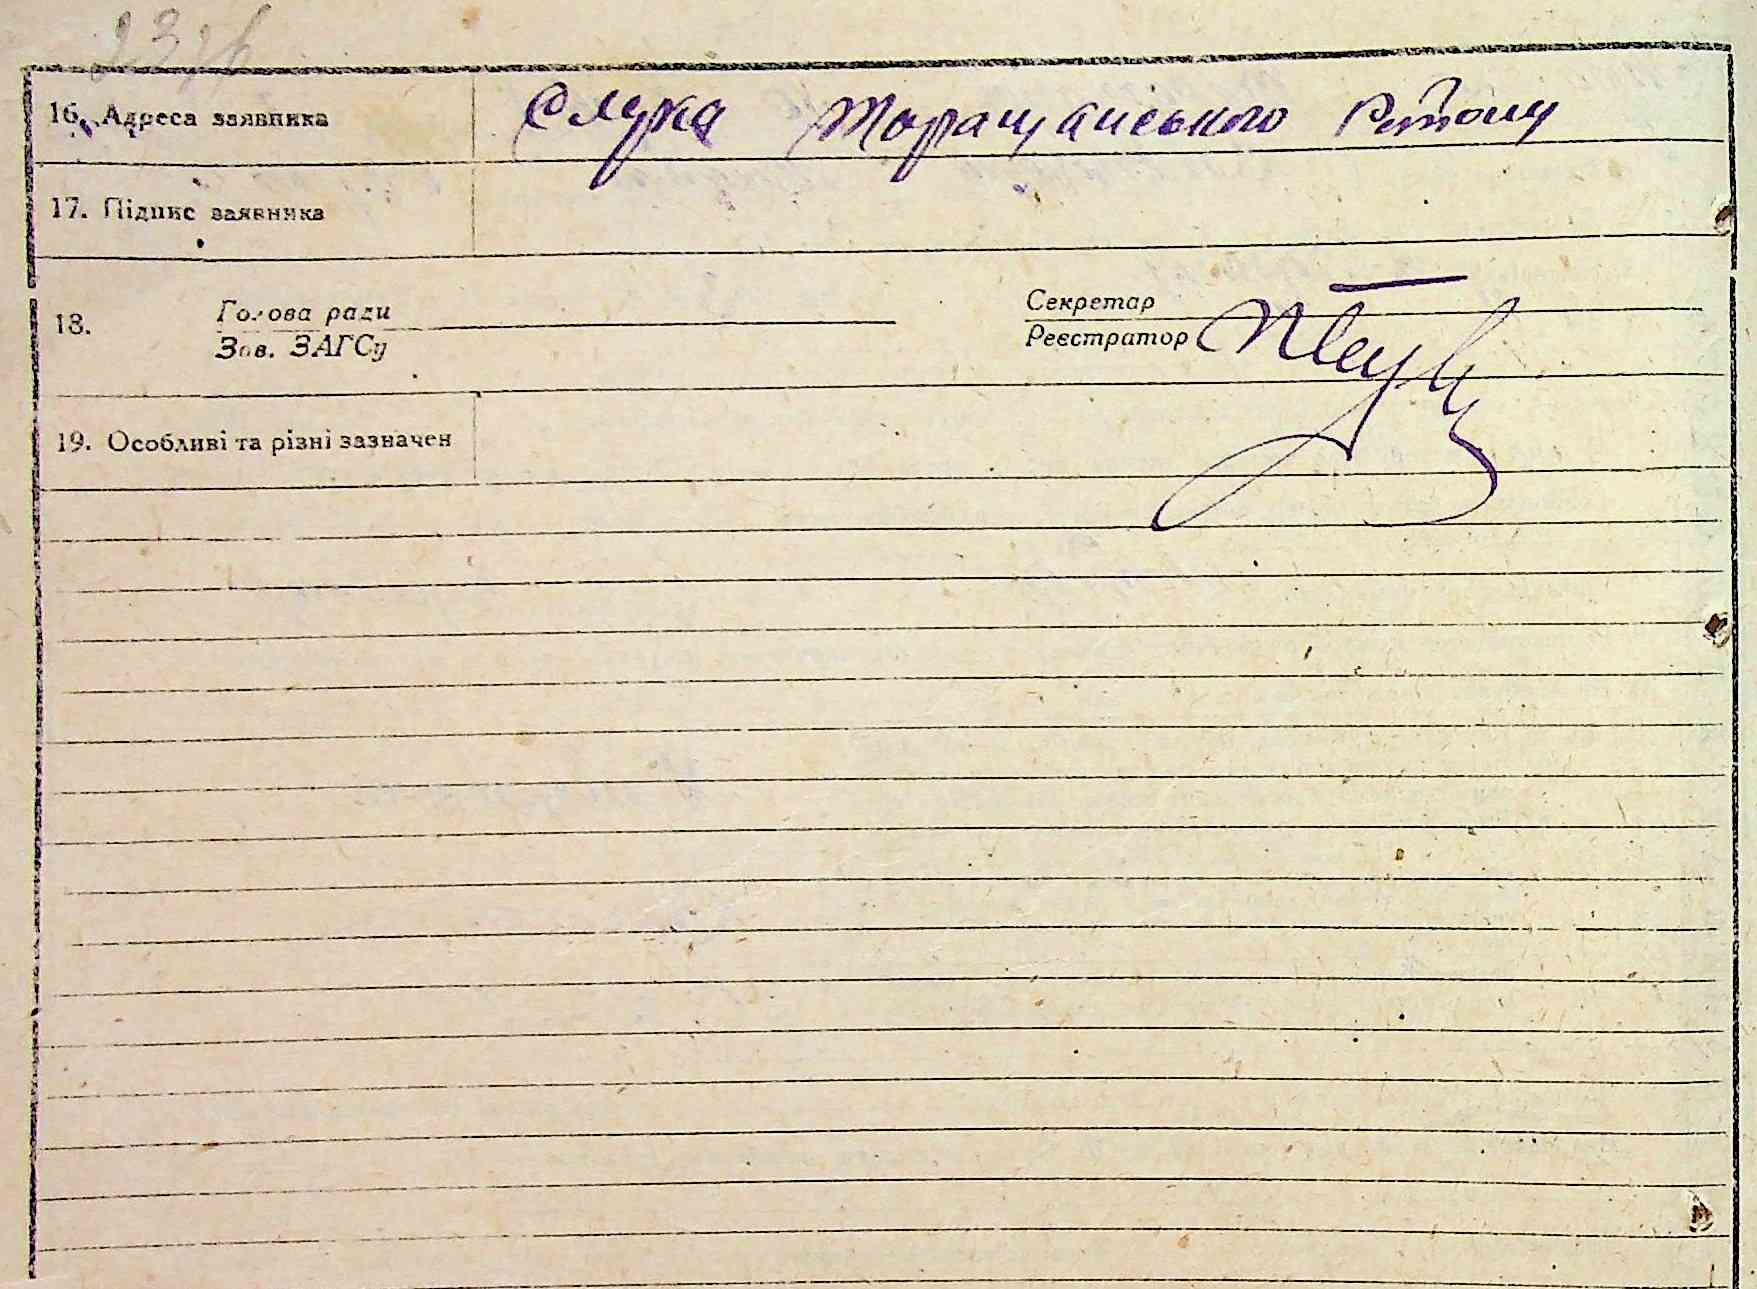 16. Адреса заявника С Лука Таращанського Району
17. Підпис заявника
18. Голова ради Секретар
Зав. ЗАГСу Реєстратор
19. Особливі та різні зазначен